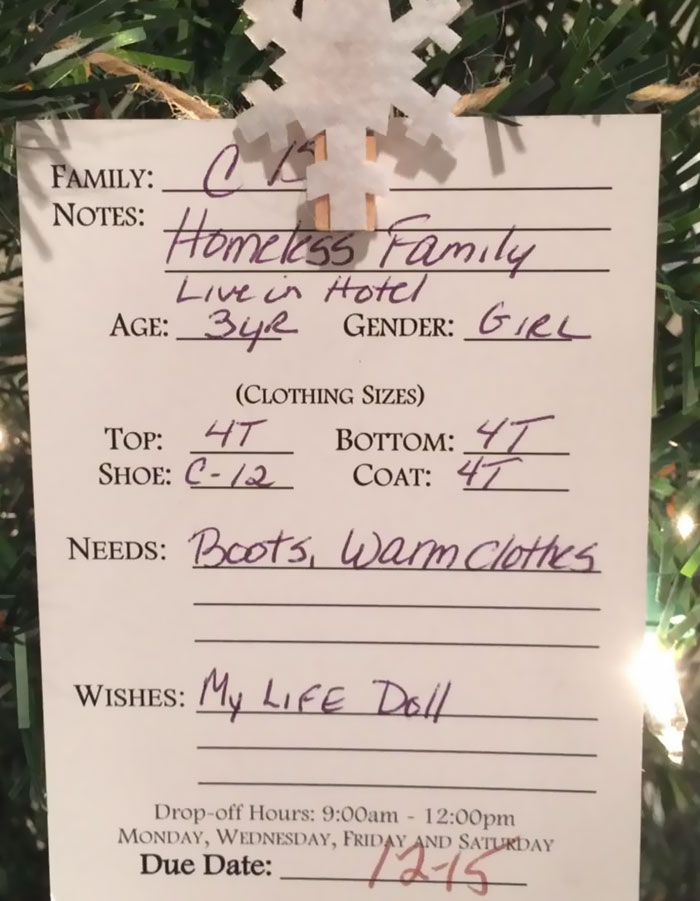 FAMILY: C
NOTES:
Homeless Family
Live in Hotel
AGE: 3yR GENDER: GIRL
(CLOTHING SIZES)
TOP: 4T BOTTOM: 4T
SHOE: C-12 COAT: 4T
NEEDS: Boots, Warm Clothes
WISHES: My LIFE Doll
Drop-off Hours: 9:00am - 12:00pm
MONDAY, WEDNESDAY, FRIDAY AND SATURDAY
Due Date: 12-15